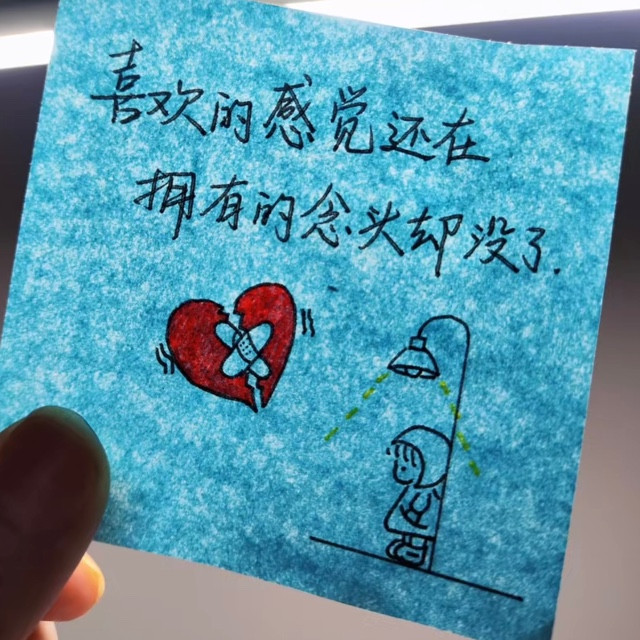 喜欢的感觉还在
拥有的念头却没了.